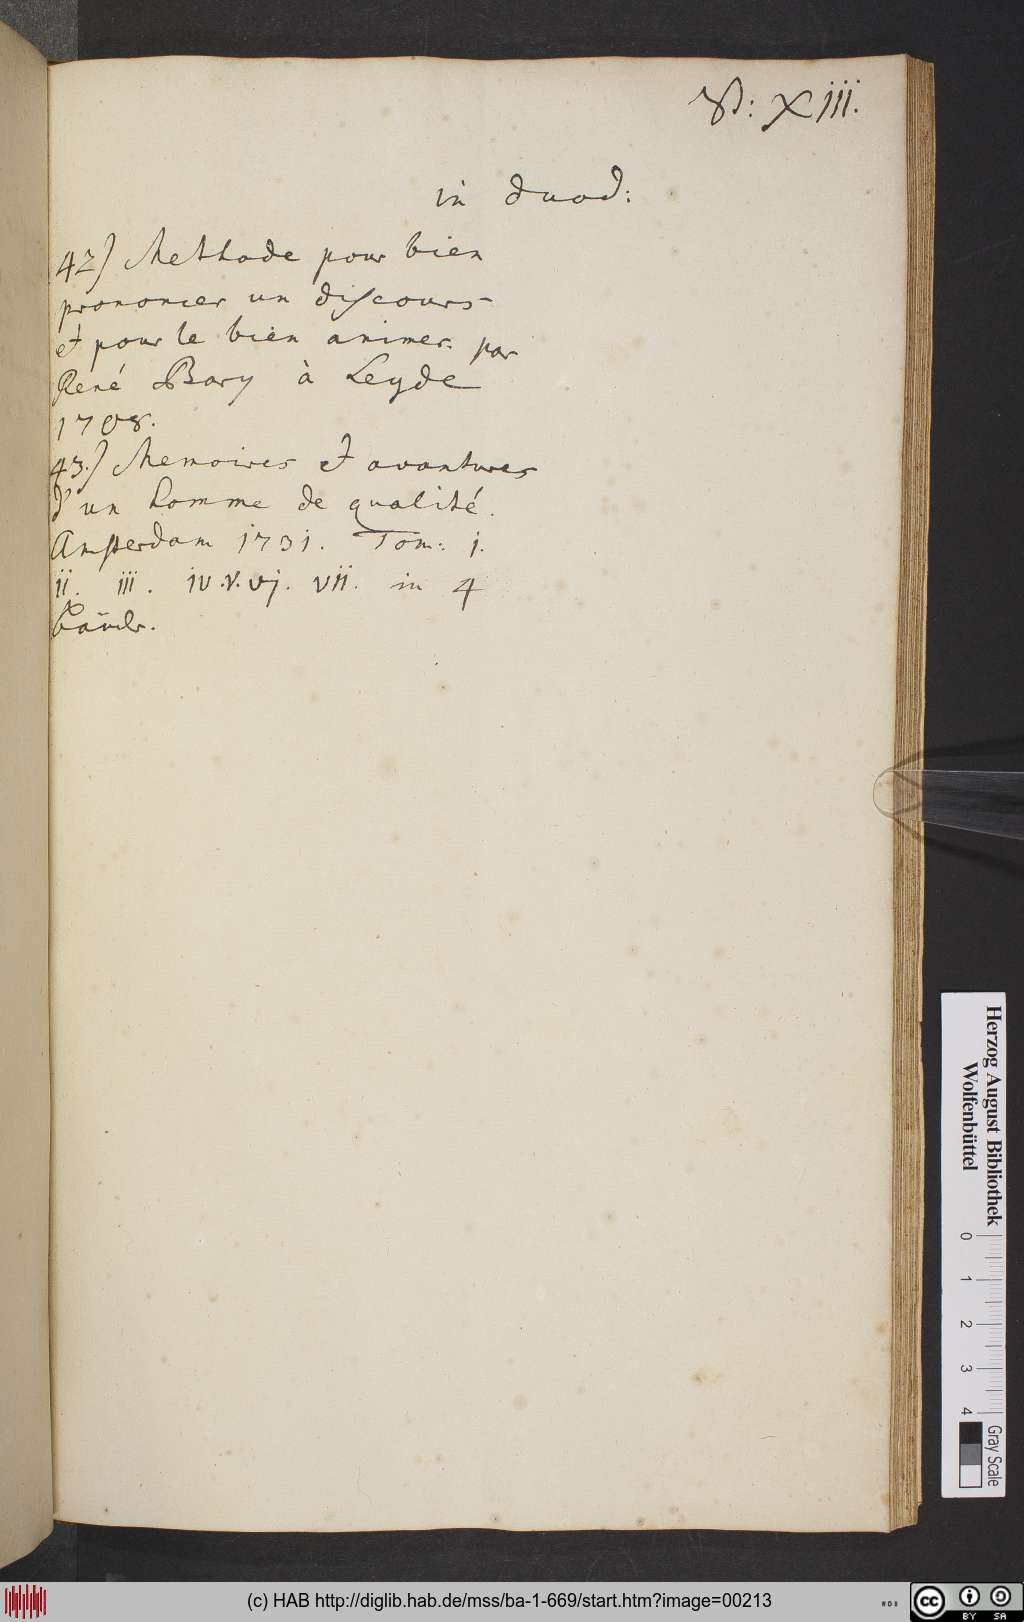 XIII.
in duod:
42) Methode pour bien
prononcer un discours
et pour le bien animer. par
René Bary à Leyde
1708.
43.) Memoires et avantures
d'un homme de qualité.
Amsterdam 1731. Tom: i.
ii. iii. iv. v. vj. vii. in 4
Bände.
Herzog August Bibliothek
Wolfenbüttel
0 1 2 3 4
Gray Scale
(c) HAB http://diglib.hab.de/mss/ba-1-669/start.htm?image=00213
cc BY SA